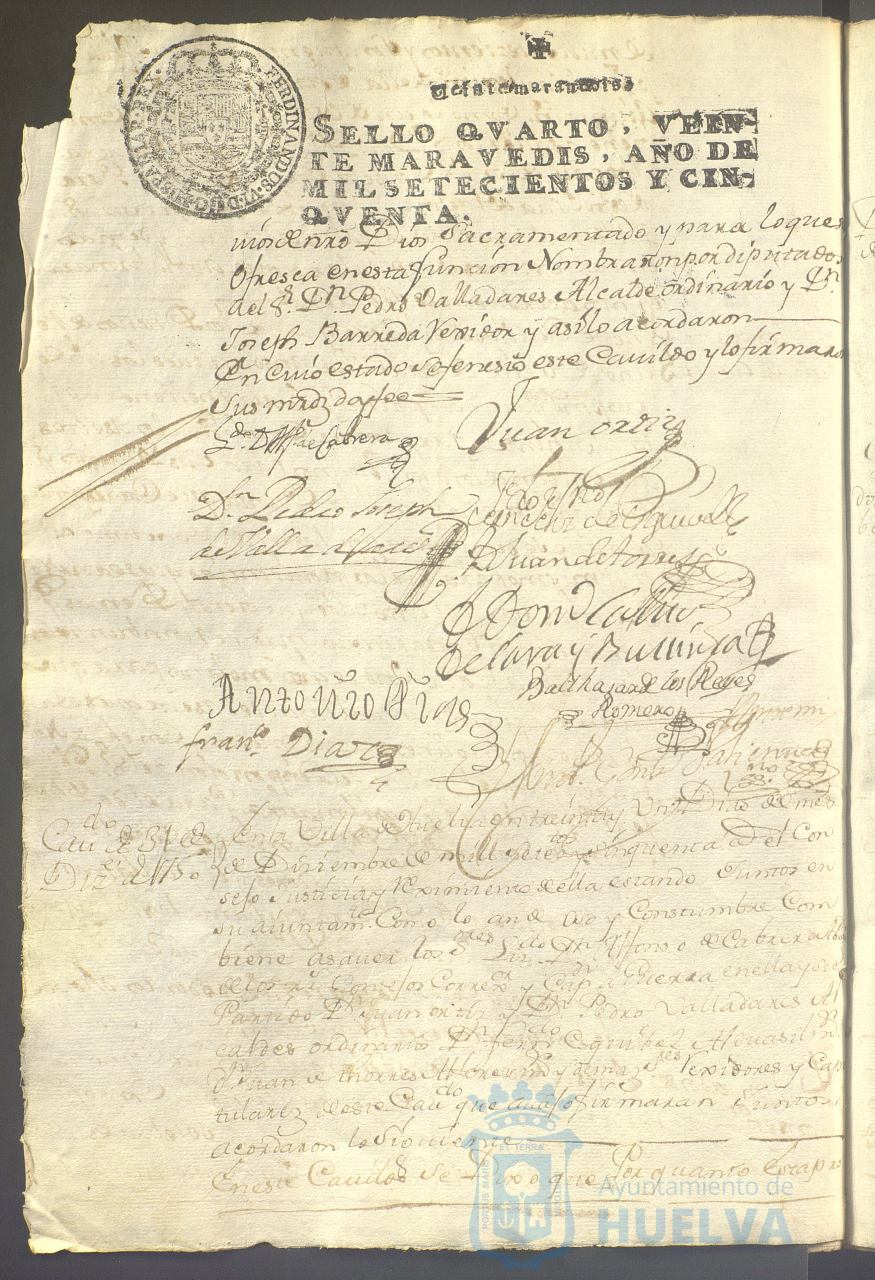 FERDINANDUS.VI.D.G. HISPANIAR.REX.
Veinte maravedis
SELLO QVARTO, VEIN-
TE MARAVEDIS, AÑO DE
MIL SETECIENTOS Y CIN-
QVENTA.
Dios Sacramentado y para lo que se
ofresca en esta función Nombraron por diputados
a el Sr. Dn. Pedro Valladares Alcalde ordinario y Dn.
Joseph Barreda Rexidor y asi lo acordaron
En cuio estado se feneció este Cavildo y lo firmaron
Sus mrdz. doy fee
Ldo. Dn. de Cabrera
Juan ortiz
Dn. Pedro Joseph
de Valladares
Juan de torres
de Lara y
Antonio
Balthasar de los Reyes
Romero
Franco. Diaz
Antemi
Cavdo. de 31 de
Dizre. de 1750
En la Villa de Huelva en treinta y un Dias de mes
de Diziembre de mill setetos. y cinquenta as. el Con
sejo Justicia y reximiento de ella estando Juntos en
su aiuntamto. Como lo an de uso y Constumbre Com
biene a saver los Sores. Lizdo. Dn. Alfonso de Cabrera Abo
de los Rs. Consejos Correxor. y Capn. a Guerra en ella y su
Partido Dn. Juan ortiz y Dn. Pedro Valladares Al
caldes ordinarios Dn. Ferndo. Esquibel Alguasil mr.
Dn. Juan de thorres Alferez mr. y demas sres. Rexidores y Capi
tulares de este Cavdo. que avajo firmaran Juntos
acordaron lo siguiente
En este Cavildo Se Dixo que Por quanto Esta pro
PORTUS MARIS ET TERRAE
Ayuntamiento de
HUELVA